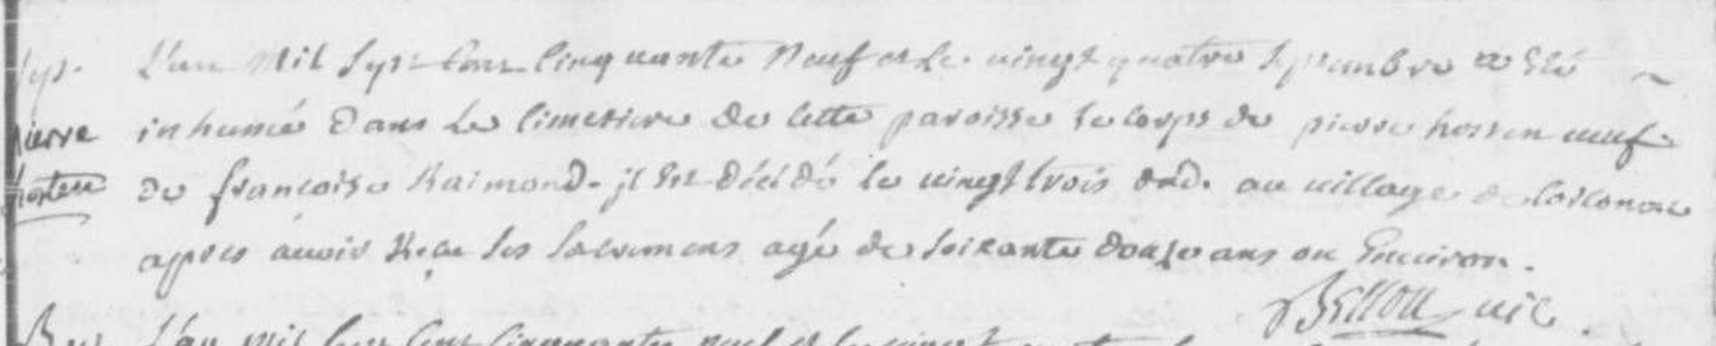 Sep. L'an Mil Sept Cent Cinquante Neuf et le vingt quatre Septembre a Eté
pierre inhumé dans Le Cimetiere de Cette paroisse le corps de pierre hosten veuf
hosten de françoise Raimond. jl Est décédé le vingt trois dud. au village de
apres avoir Reçu les Sacremens agé de Soixante douze ans ou Environ.
Bellou vic.
L'an mil Sept Cent Cinquante neuf et le vingt